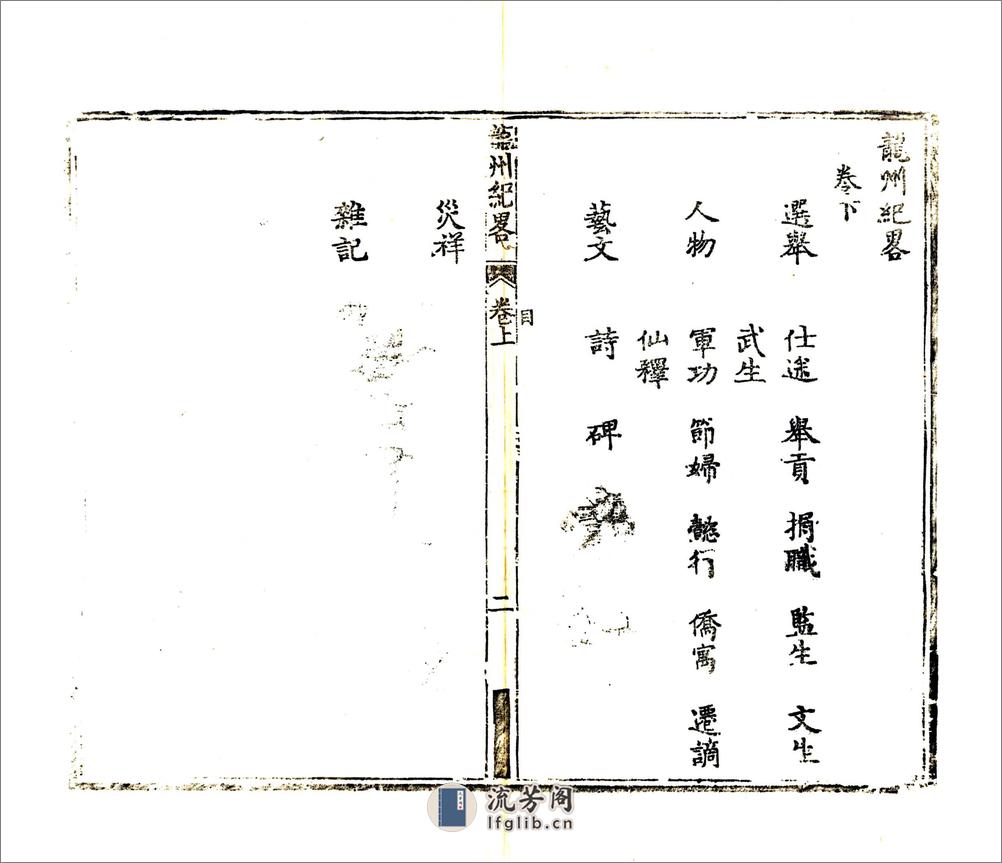 龍州紀畧
卷下
選舉 仕途 舉貢 捐職 監生 文生
武生
人物 軍功 節婦 懿行 僑寓 遷謫
仙釋
藝文 詩 碑
龍州紀畧 卷上 目 二
災祥
雜記
流芳阁
lfglib.cn